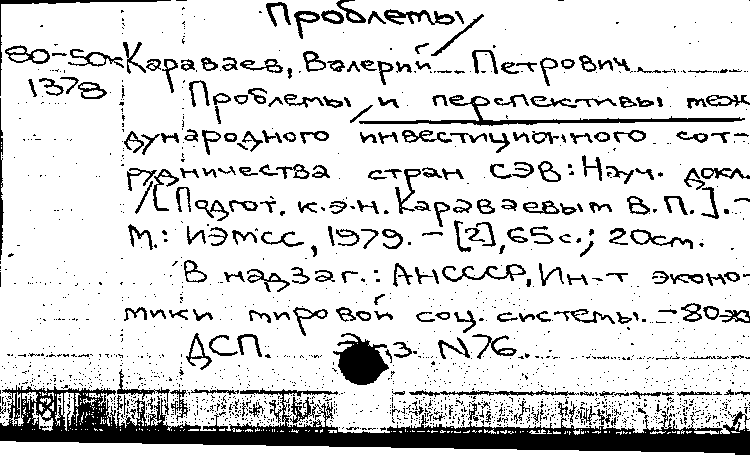 Проблемы
80-50к Караваев, Валерий Петрович.
1378 Проблемы и перспективы меж
дународного инвестиционного сот-
рудничества стран СЭВ: Науч. докл.
/[Подгот. к.э.н. Караваевым В.П.]. -
М.: ИЭМСС, 1979. - [2], 65с.; 20см.
В надзаг.: АН СССР, Ин-т эконо-
мики мировой соц. системы. - 80экз
ДСП. Экз. N76.